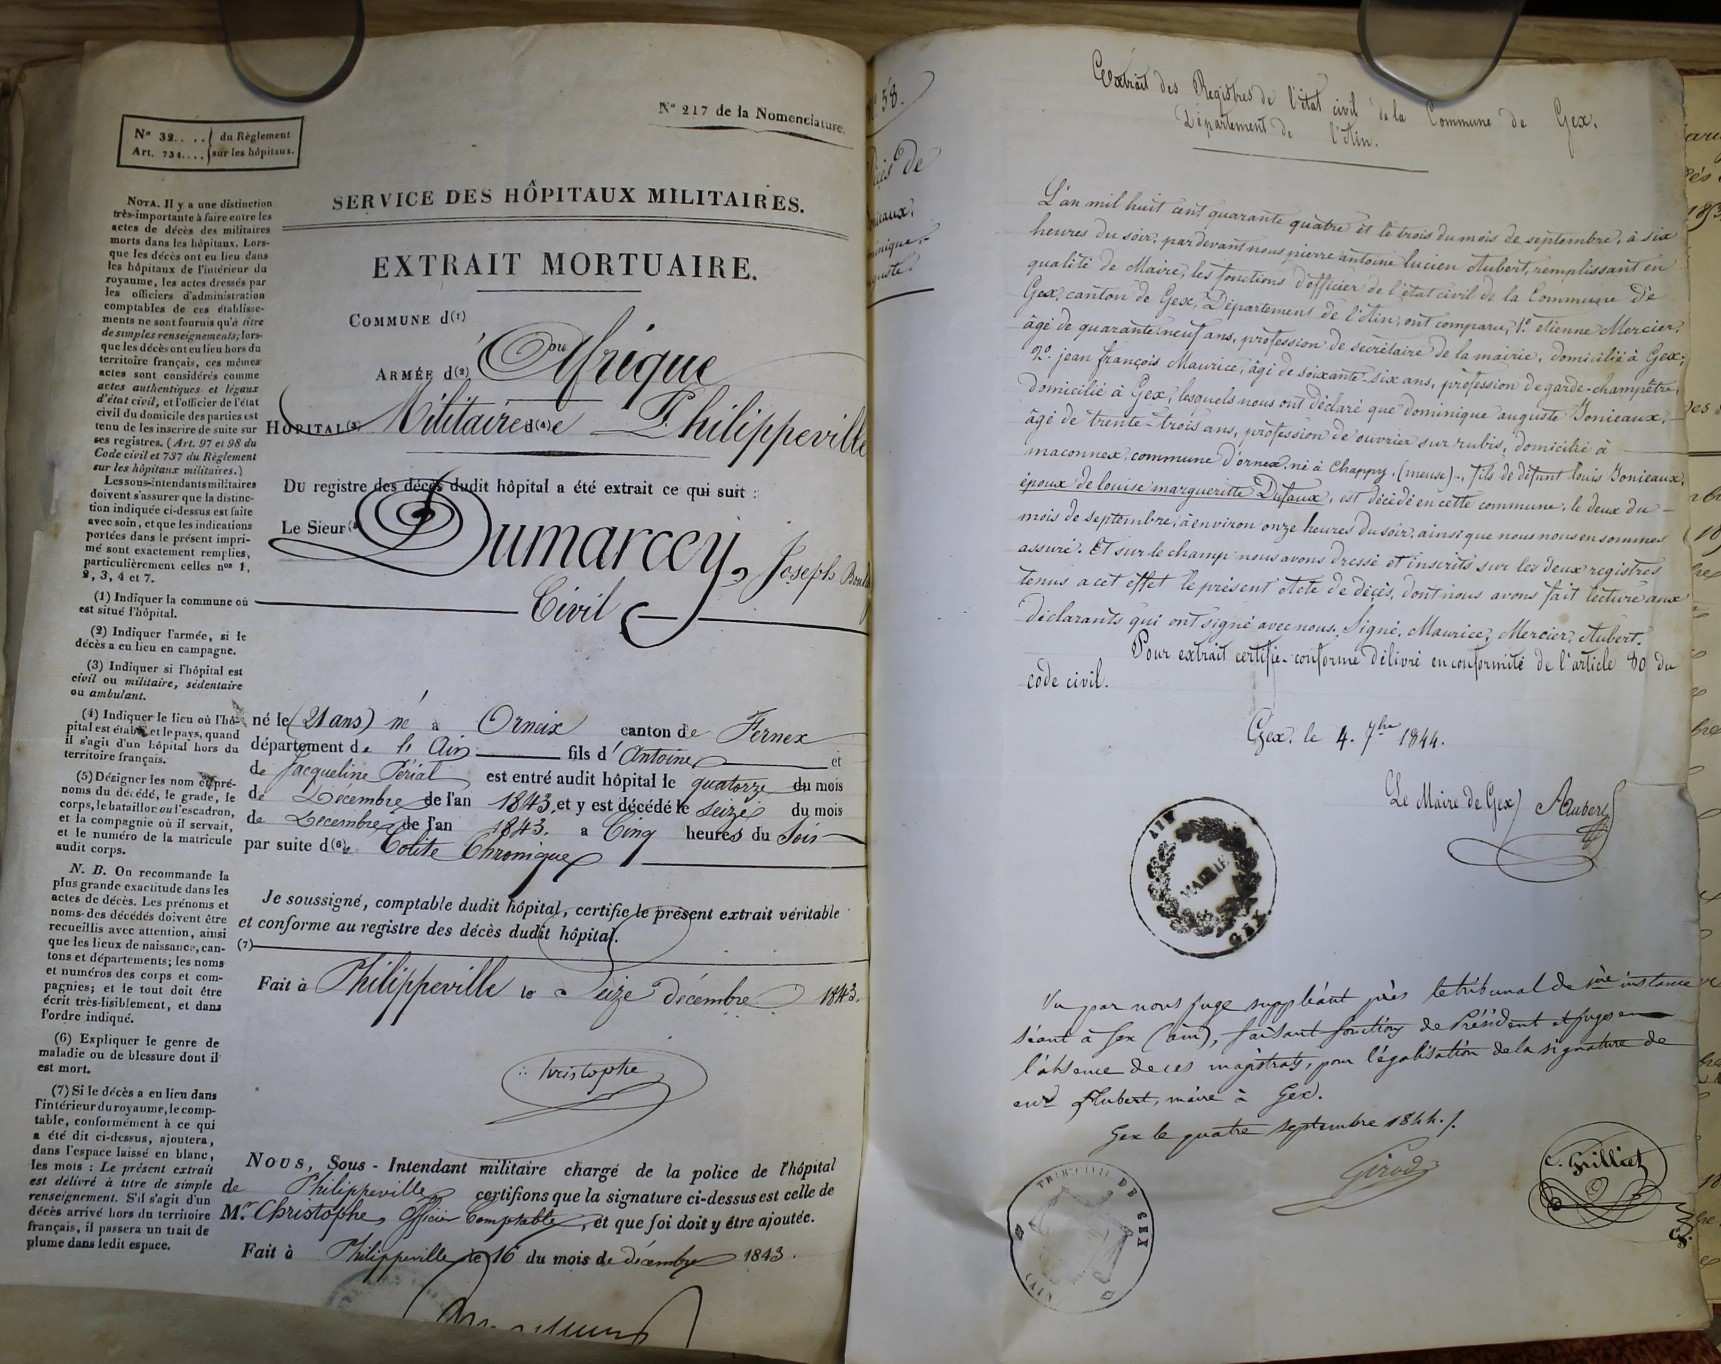 N° 32.. .. du Règlement
Art. 734.... sur les hôpitaux.
N° 217 de la Nomenclature.
SERVICE DES HÔPITAUX MILITAIRES.
EXTRAIT MORTUAIRE.
COMMUNE d(1)
ARMÉE d(2) Afrique
HÔPITAL(3) Militaire d(4)e Philippeville
Du registre des décès dudit hôpital a été extrait ce qui suit :
Le Sieur(5) Dumarcey, Joseph
Civil
né le (21 ans) né à Ornex canton de Fernex
département de l'Ain fils d'Antoine et
de Jacqueline Périal est entré audit hôpital le quatorze du mois
de Décembre de l'an 1843, et y est décédé le seize du mois
de Décembre de l'an 1843. a Cinq heures du Soir
par suite d(6)e Colite Chronique
Je soussigné, comptable dudit hôpital, certifie le présent extrait véritable
et conforme au registre des décès dudit hôpital.
(7)
Fait à Philippeville le Seize décembre 1843.
Christophe
NOUS, Sous-Intendant militaire chargé de la police de l'hôpital
de Philippeville certifions que la signature ci-dessus est celle de
Mr Christophe, Officier Comptable, et que foi doit y être ajoutée.
Fait à Philippeville le 16 du mois de décembre 1843.
NOTA. Il y a une distinction
très-importante à faire entre les
actes de décès des militaires
morts dans les hôpitaux. Lors-
que les décès ont eu lieu dans
les hôpitaux de l'intérieur du
royaume, les actes dressés par
les officiers d'administration
comptables de ces établisse-
ments ne sont fournis qu'à titre
de simples renseignements; lors-
que les décès ont eu lieu hors du
territoire français, ces mêmes
actes sont considérés comme
actes authentiques et légaux
d'état civil, et l'officier de l'état
civil du domicile des parties est
tenu de les inscrire de suite sur
ses registres. (Art. 97 et 98 du
Code civil et 737 du Règlement
sur les hôpitaux militaires.)
Les sous-intendants militaires
doivent s'assurer que la distinc-
tion indiquée ci-dessus est faite
avec soin, et que les indications
portées dans le présent impri-
mé sont exactement remplies,
particulièrement celles nos 1,
2, 3, 4 et 7.
(1) Indiquer la commune où
est situé l'hôpital.
(2) Indiquer l'armée, si le
décès a eu lieu en campagne.
(3) Indiquer si l'hôpital est
civil ou militaire, sédentaire
ou ambulant.
(4) Indiquer le lieu où l'hô-
pital est établi et le pays, quand
il s'agit d'un hôpital hors du
territoire français.
(5) Désigner les nom et pré-
noms du décédé, le grade, le
corps, le bataillon ou l'escadron,
et la compagnie où il servait,
et le numéro de la matricule
audit corps.
N. B. On recommande la
plus grande exactitude dans les
actes de décès. Les prénoms et
noms des décédés doivent être
recueillis avec attention, ainsi
que les lieux de naissance, can-
tons et départements; les noms
et numéros des corps et com-
pagnies; et le tout doit être
écrit très-lisiblement, et dans
l'ordre indiqué.
(6) Expliquer le genre de
maladie ou de blessure dont il
est mort.
(7) Si le décès a eu lieu dans
l'intérieur du royaume, le comp-
table, conformément à ce qui
a été dit ci-dessus, ajoutera,
dans l'espace laissé en blanc,
les mots : Le présent extrait
est délivré à titre de simple
renseignement. S'il s'agit d'un
décès arrivé hors du territoire
français, il passera un trait de
plume dans ledit espace.
58.
de
Extrait des Registres de l'état civil de la Commune de Gex.
Département de l'Ain.
L'an mil huit cent quarante quatre et le trois du mois de septembre, à six
heures du soir, par devant nous pierre antoine lucien Aubert, remplissant en
qualité de Maire, les fonctions d'officier de l'état civil de la Commune de
Gex, canton de Gex, Département de l'Ain, ont comparu, 1° etienne Mercier,
âgé de quarante neuf ans, profession de secrétaire de la mairie, domicilié à Gex;
2° jean françois Maurice, âgé de soixante-six ans, profession de garde-champêtre,
domicilié à Gex, lesquels nous ont déclaré que dominique auguste Jonieaux,
âgé de trente-trois ans, profession de ouvrier sur rubis, domicilié à
maconnex, commune d'ornex, né à Chappy, (meuse), fils de défunt louis Jonieaux,
époux de louise margueritte Dufaux, est décédé en cette commune, le deux du
mois de septembre, à environ onze heures du soir, ainsi que nous nous en sommes
assuré. Et sur le champ nous avons dressé et inscrits sur les deux registres
tenus a cet effet le présent acte de décès, dont nous avons fait lecture aux
déclarants qui ont signé avec nous. Signé, Maurice, Mercier, Aubert.
Pour extrait certifié conforme délivré en conformité de l'article 80 du
code civil.
Gex, le 4. 7bre 1844.
Le Maire de Gex, Aubert
AIN
MAIRIE
GEX
Vu par nous Juge suppléant près le tribunal de 1ère instance
séant à Gex (ain), faisant fonctions de Président et juge en
l'absence de ces magistrats, pour légalisation de la signature de
Aubert, maire à Gex.
Gex le quatre septembre 1844.
Girod
C. Grilliet
TRIB. CIVIL DE GEX
(AIN)